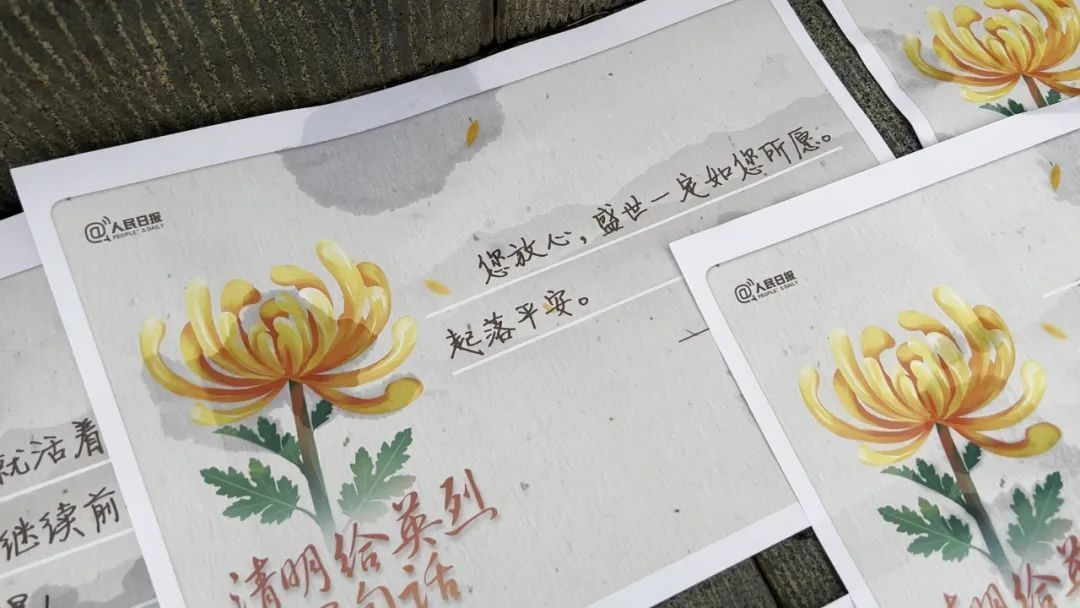 人民日报
PEOPLE'S DAILY
您放心，盛世一定如您所愿。
起落平安。
清明给英烈
句话
就活着
继续前
人民日报
PEOPLE'S DAILY
清明给英